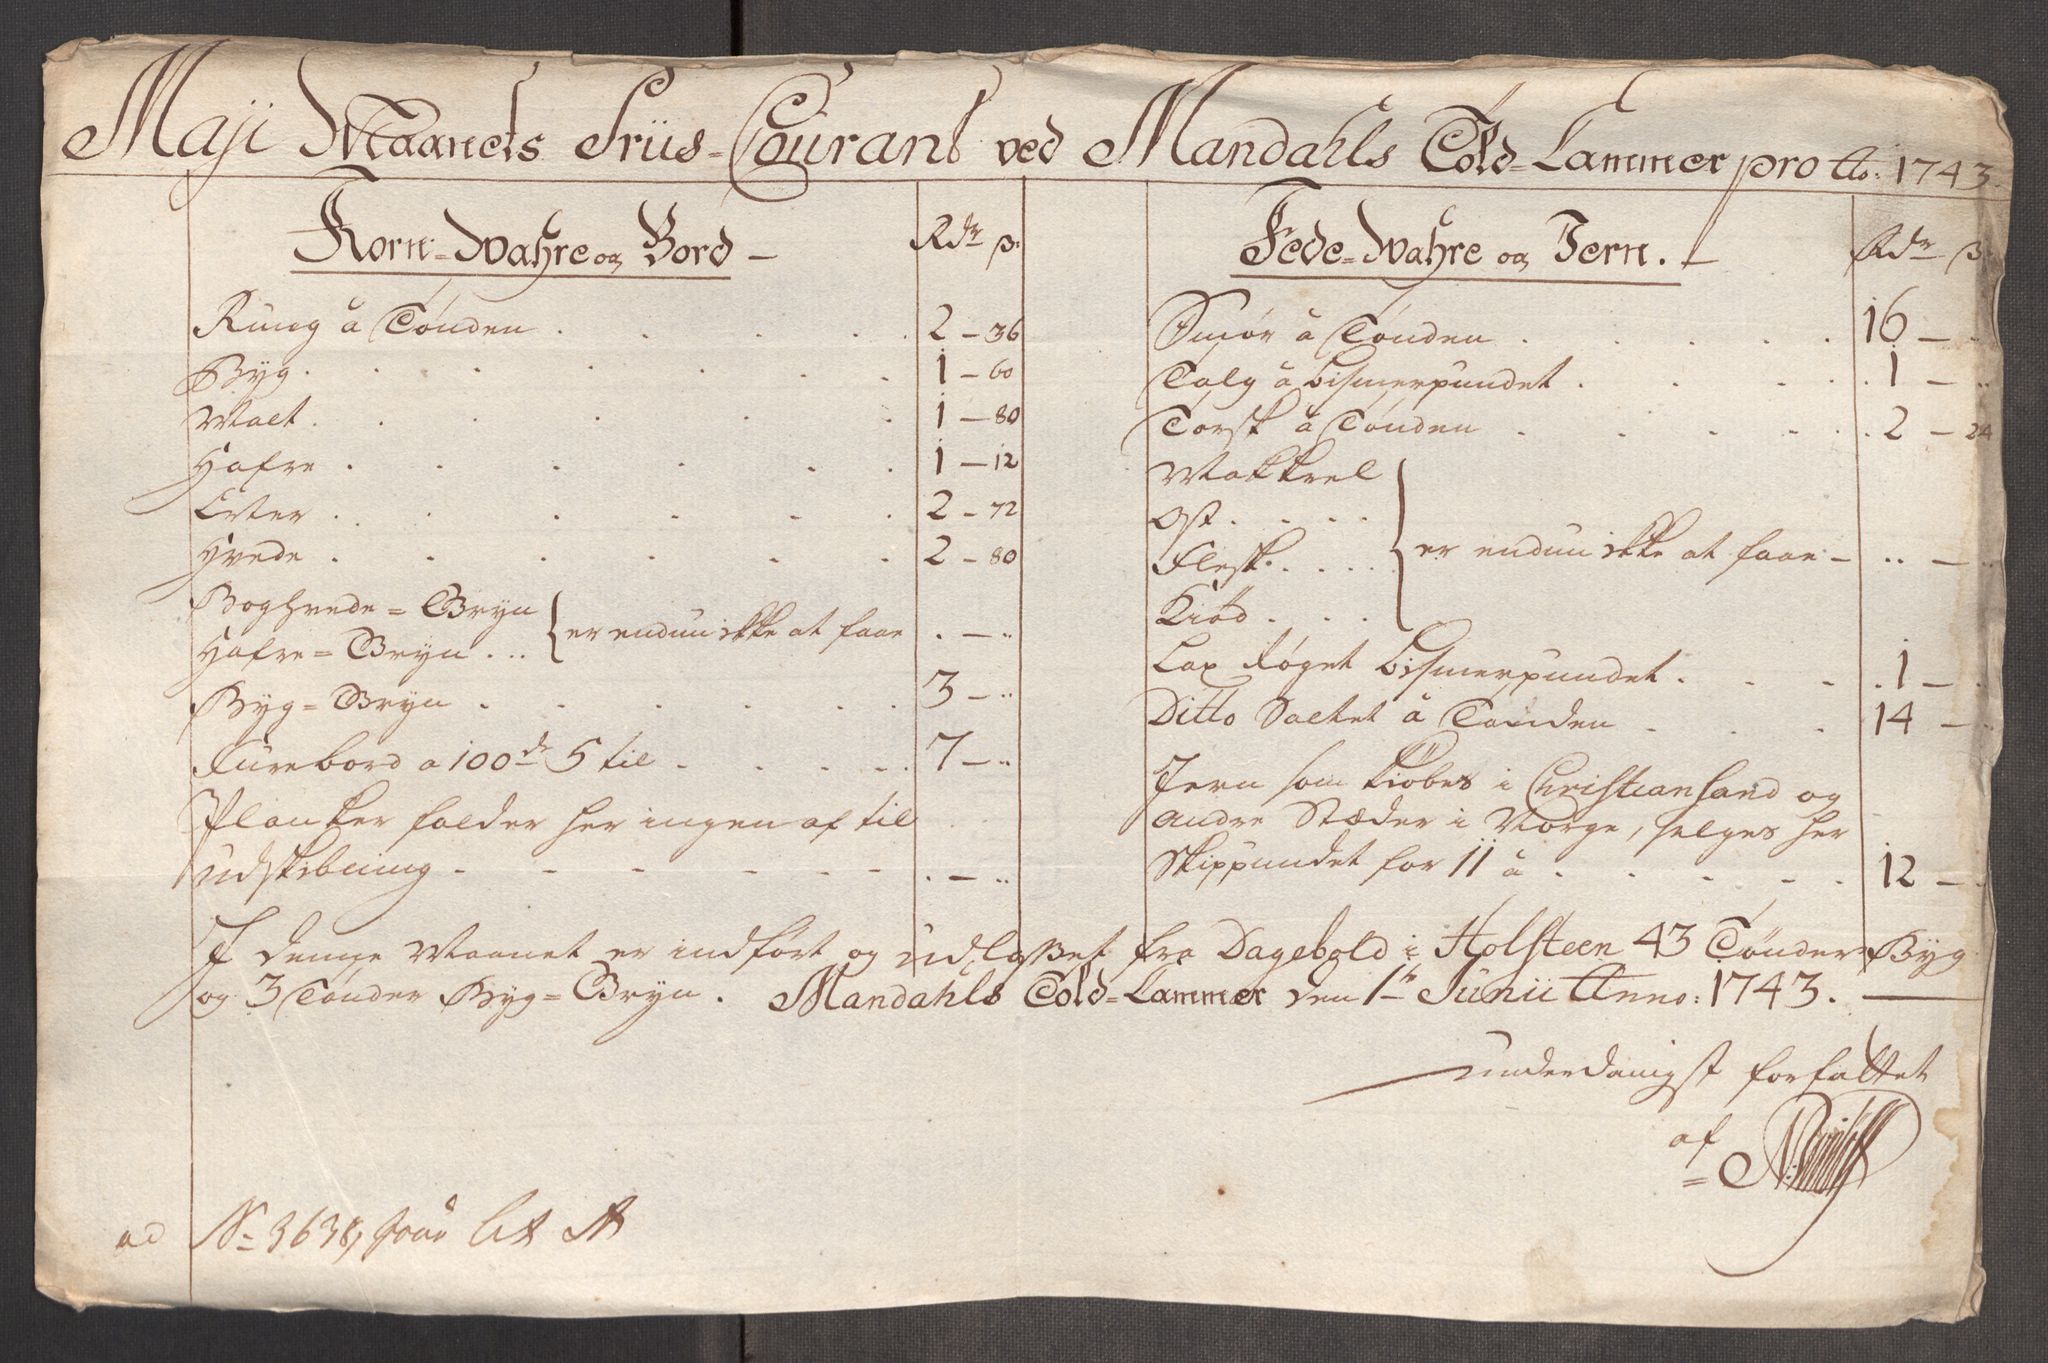 Maji Maanets Priis-Courant ved Mandahls Told-Cammer pro Ao: 1743.
Korn-Wahre og Bord -
Rdr ß:
Rueg â Tønden . . . . 2 - 36
Byg . . . . . . 1 - 60
Malt . . . . . . 1 - 80
Hafre . . . . . 1 - 12
Erter . . . . . . 2 - 72
Hvede . . . . . . 2 - 80
Boghvede = Gryn
Hafre = Gryn . . .
er endnu ikke at faae . - ..
Byg = Gryn . . . . . 3 - ..
Furebord a 100de 5 til . . . . 7 - ..
Planker falder her ingen af til
udskibning . - - - - - . - ..
Fede-Wahre og Jern. -
Rdr ß
Smør â Tønden . . . . . 16 - .
Talg â bismerpundet . . . . 1 - ..
Torsk â Tønden . . . . . 2 - 24
Makkrel
Ost . . . .
Flesk . . . .
Kiød . . . .
er endnu ikke at faae - .. - ..
Lax røget bismerpundet . . . . 1 - .
Ditto Saltet â Tønden . . . 14 - ..
Jern som kiøbes i Christiansand og
andre Stæder i Norge, selges her
Skippundet for 11 â . . . . . 12 - .
I denne Maanet er indført og udlosset fra Dagebold i Holsteen 43 Tønder Byg
og 3 Tønder Byg = Gryn. Mandahls Told-Cammer den 1te Junii Anno: 1743. -
underdanigst forfattet
af
ad No 3638, Lit A